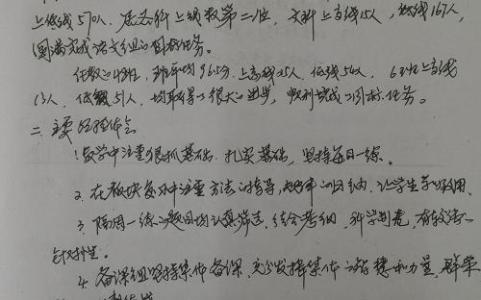 上线570人，居六科上线数第二位，文科上高线15人，低线167人，
圆满完成语文组的目标任务。
任教248班，班平均96.5分，上高线25人，低线54人，6班上高线
13人，低线51人，均取得了很大的进步，顺利完成了目标任务。
二、主要的经验体会
1.教学中注重狠抓基础，扎实基础，坚持每日一练。
2.在板块复习中注重方法的指导，归纳，让学生学以致用。
3.隔周一练的题目均认真筛选，结合考纲，科学制卷，有较强的
针对性。
4.备课组坚持集体备课，充分发挥集体的智慧和力量，群策